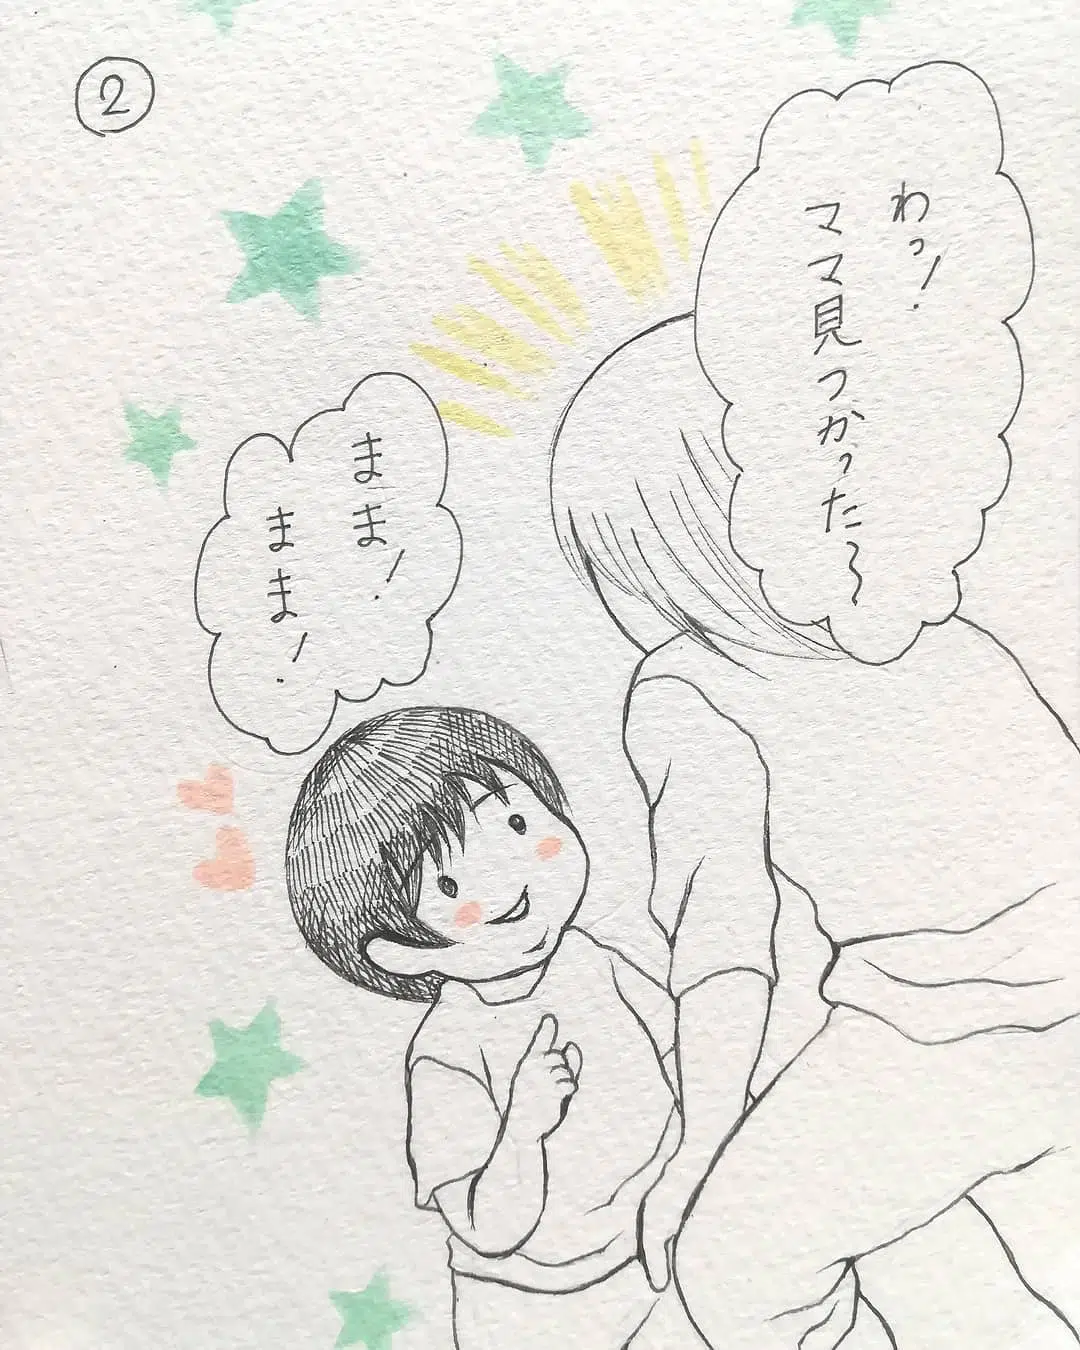 ②
わっ!
ママ見つかった〜
まま!
まま!